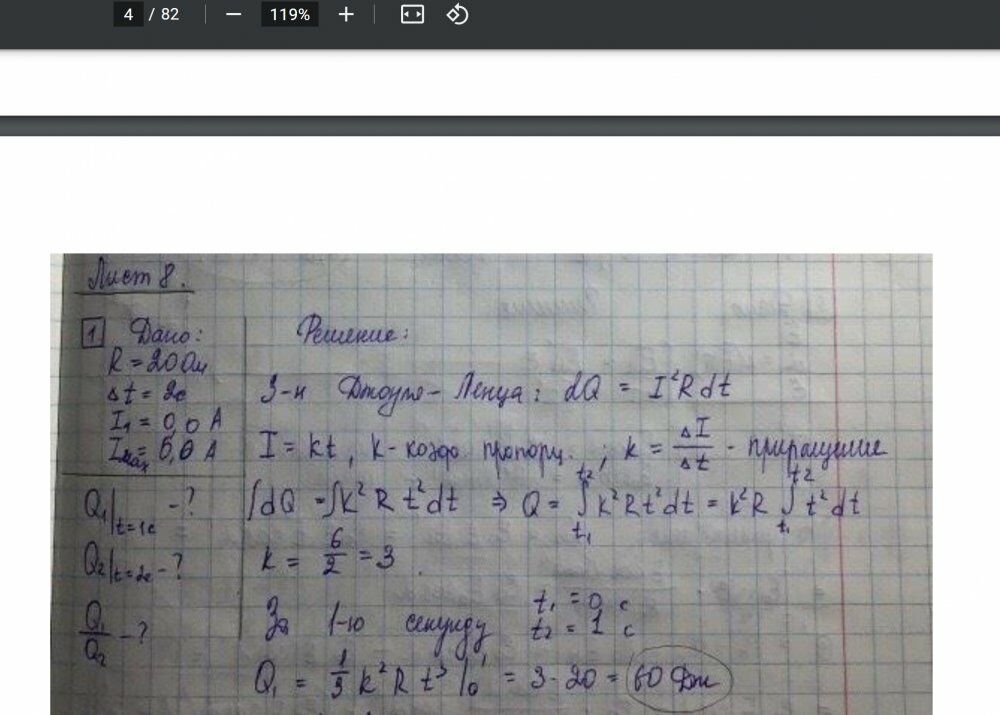 4 / 82 − 119% +
Лист 8.
1 Дано:
R = 20 Ом
Δt = 2с
I₁ = 0,0 А
Imax = 6,0 А
Q₁|t=1с - ?
Q₂|t=2с - ?
Q₁/Q₂ - ?
Решение:
З-н Джоуля-Ленца: dQ = I²Rdt
I = kt, k - коэфф пропорц. ; k = ΔI/Δt - приращение
∫dQ = ∫k² R t²dt ⇒ Q = ∫t₁t₂ k²Rt²dt = k²R ∫t₁t₂ t²dt
k = 6/2 = 3
За 1-ю секунду t₁ = 0 с
t₂ = 1 с
Q₁ = 1/3 k² R t³ |₀¹ = 3·20 = 60 Дж